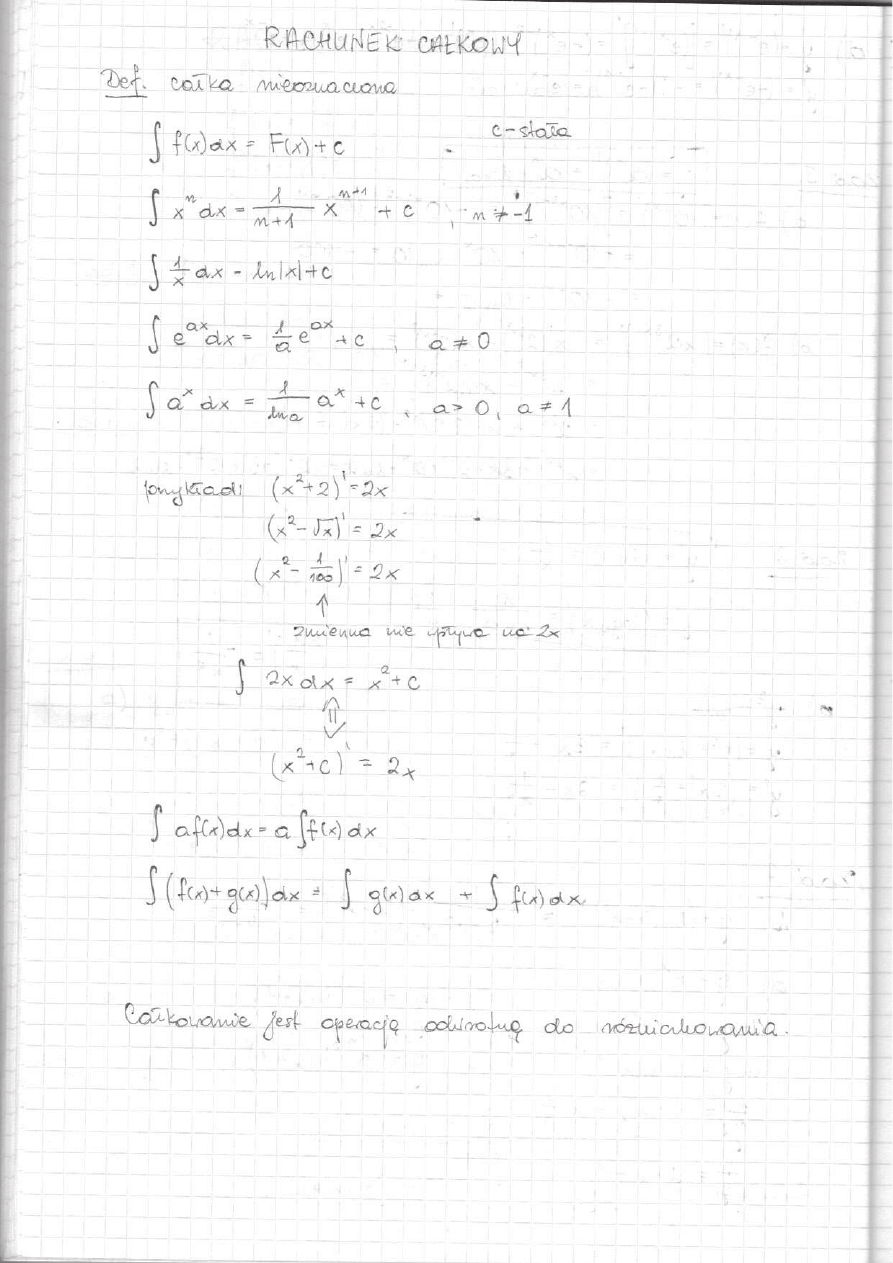 RACHUNEK CAŁKOWY
Def. całka nieoznaczona
∫ f(x)dx = F(x) + c c-stała
∫ xⁿ dx = 1/(n+1) xⁿ⁺¹ + c , n ≠ -1
∫ 1/x dx - ln|x|+c
∫ e^(ax) dx = 1/a e^(ax) + c , a ≠ 0
∫ aˣ dx = 1/(ln a) aˣ + c , a > 0, a ≠ 1
przykład: (x²+2)' = 2x
(x² - √x)' = 2x
(x² - 1/100)' = 2x
↑
zmienna nie wpływa na 2x
∫ 2x dx = x² + c
⇕
(x² + c)' = 2x
∫ af(x)dx = a ∫f(x)dx
∫(f(x)+g(x))dx = ∫ g(x)dx + ∫ f(x)dx
Całkowanie jest operacją odwrotną do różniczkowania.